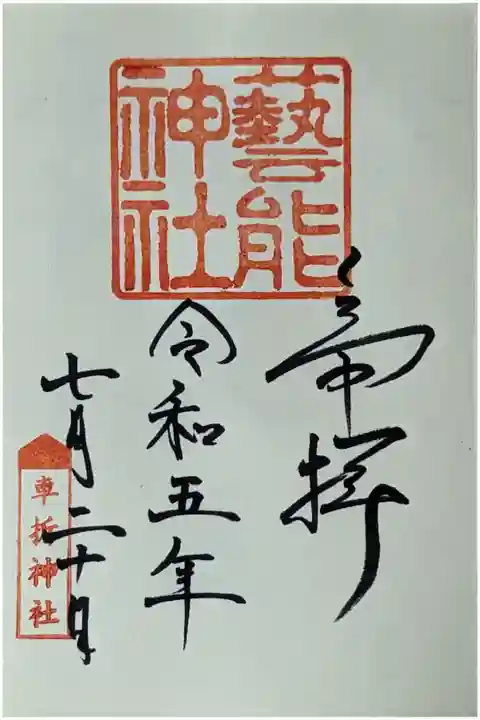 藝能
神社
奉拝
令和五年
七月二十日
車折神社